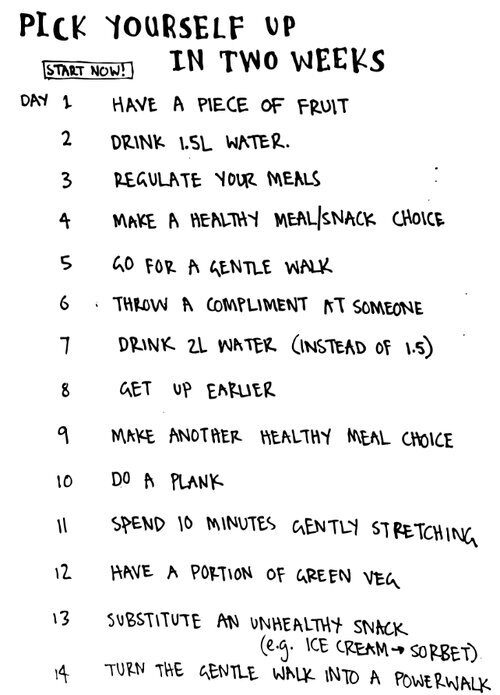 PICK YOURSELF UP
IN TWO WEEKS
START NOW!
DAY 1 HAVE A PIECE OF FRUIT
2 DRINK 1.5L WATER.
3 REGULATE YOUR MEALS
4 MAKE A HEALTHY MEAL/SNACK CHOICE
5 GO FOR A GENTLE WALK
6 THROW A COMPLIMENT AT SOMEONE
7 DRINK 2L WATER (INSTEAD OF 1.5)
8 GET UP EARLIER
9 MAKE ANOTHER HEALTHY MEAL CHOICE
10 DO A PLANK
11 SPEND 10 MINUTES GENTLY STRETCHING
12 HAVE A PORTION OF GREEN VEG
13 SUBSTITUTE AN UNHEALTHY SNACK
(e.g. ICE CREAM → SORBET)
14 TURN THE GENTLE WALK INTO A POWERWALK